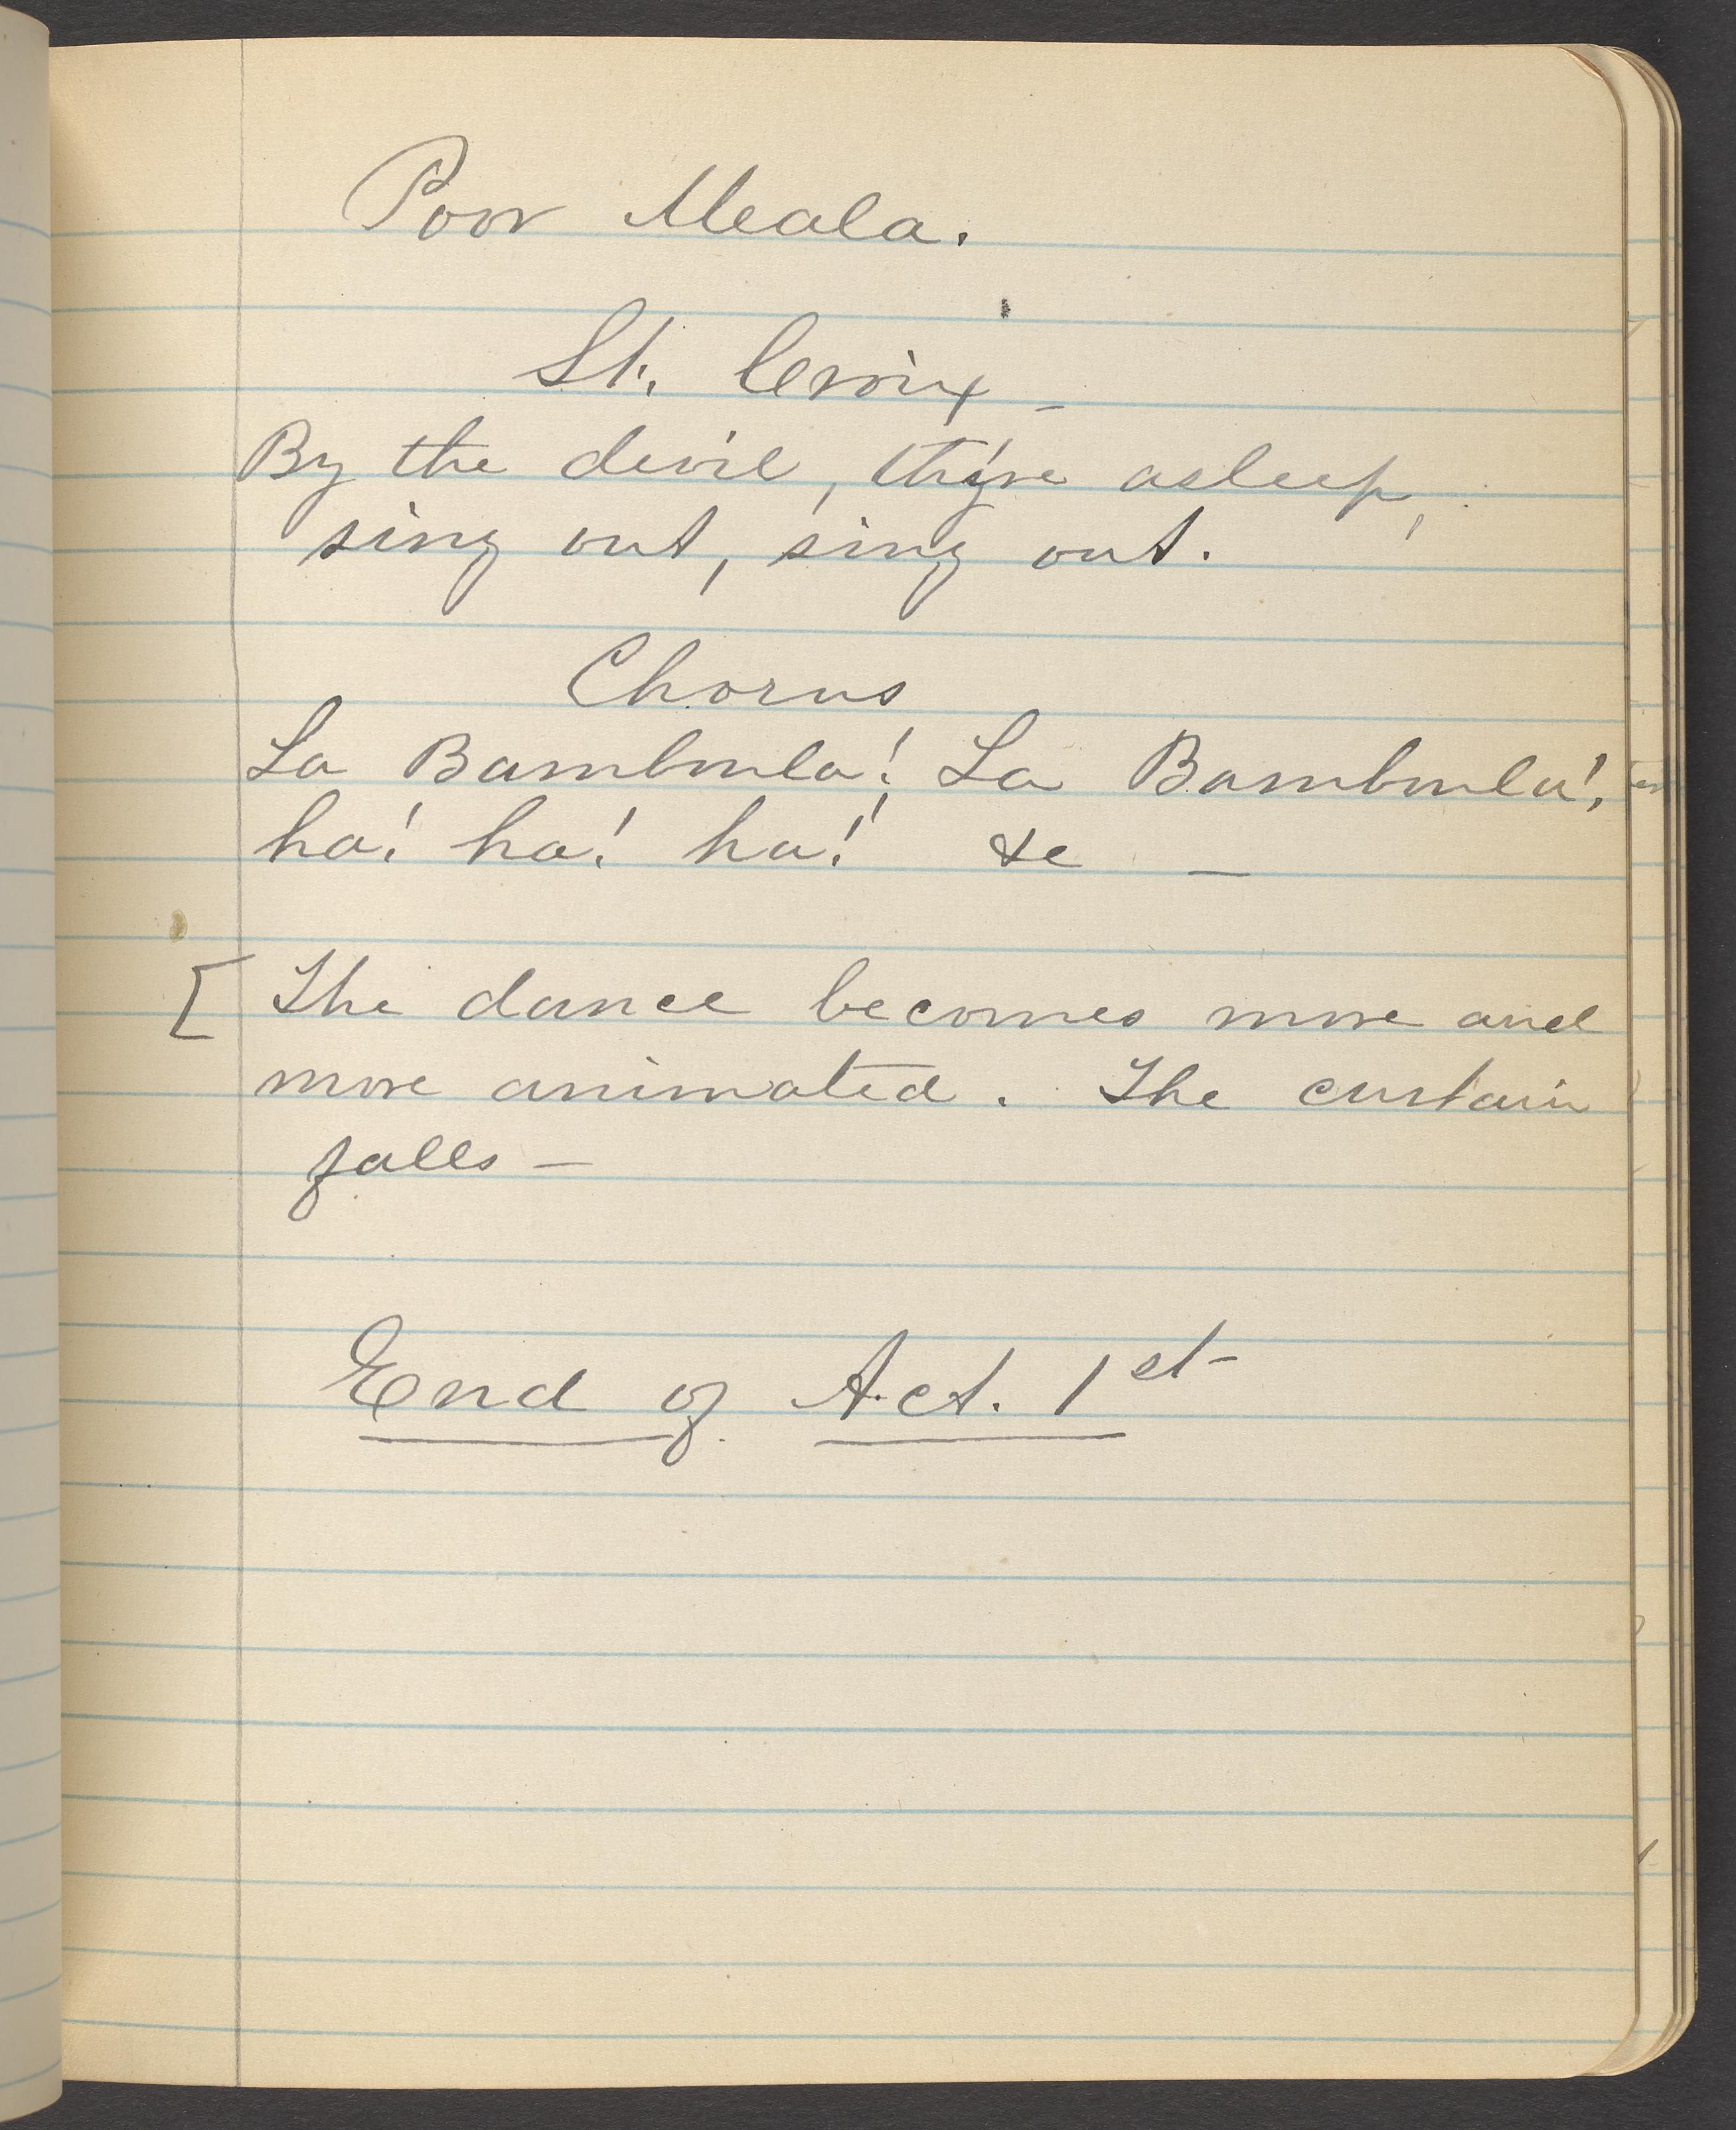 Poor Meala.
St. Croix _
By the devil, they're asleep,
sing out, sing out.
Chorus
La Bamboula! La Bamboula!
ha! ha! ha! &c _
[ The dance becomes more and
more animated. The curtain
falls –
End of Act. 1st